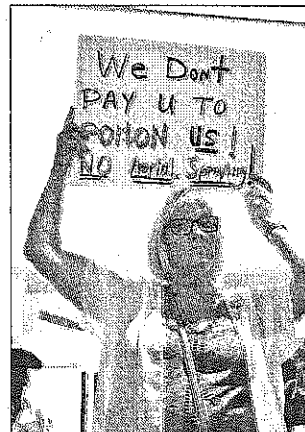 We Don't
PAY U TO
POISON US!
NO Aerial Spraying!